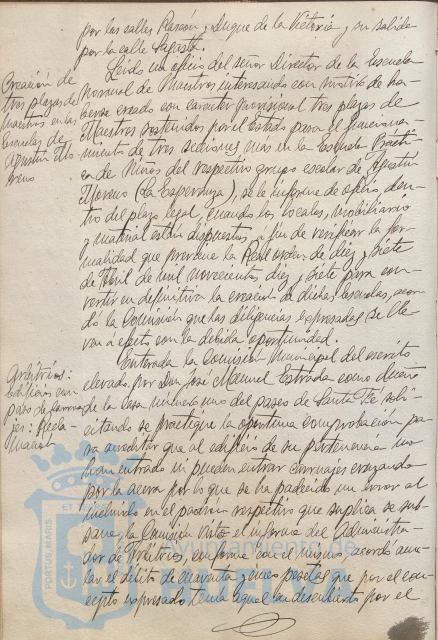 por las calles Rascón, Duque de la Victoria, y su salida
por la calle Sagasta.
Creación de
tres plazas de
maestros en las
escuelas de
Agustín Mo-
reno
Leído un oficio del señor Director de la Escuela
Normal de Maestros interesando con motivo de ha-
berse creado con carácter provisional tres plazas de
Maestros sostenidos por el Estado para el funciona-
miento de tres secciones mas en la Escuela Prácti-
ca de Niños del respectivo grupo escolar de Agustín
Moreno (La Esperanza), se le informe de oficio, den-
tro del plazo legal, cuando los locales, mobiliario
y material estén dispuestos a fin de verificar la for-
malidad que previene la Real orden de diez y siete
de Abril de mil novecientos diez y siete para con-
vertir en definitiva la creación de dichas Escuelas, acor-
dó la Comisión que las diligencias expresadas se lle-
van a efecto con la debida oportunidad.
Arbitrios:
edificios con
paso de carrua-
jes: Recla-
mación
Enterada la Comisión municipal del escrito
elevado por Don José Manuel Estrada como dueño
de la casa número uno del paseo de Santa Fe soli-
citando se practique la oportuna comprobación pa-
ra acreditar que al edificio de su pertenencia no
han entrado ni pueden entrar carruajes cruzando
por la acera por lo que se ha padecido un error al
incluirlo en el padrón respectivo que suplica se sub-
sane, la Comisión visto el informe del Administra-
dor de Arbitrios, conforme con el mismo, acordó anu-
lar el débito de cuarenta y cinco pesetas que por el con-
cepto expresado tenía aquel en descubierto por el
PORTUS MARIS ET